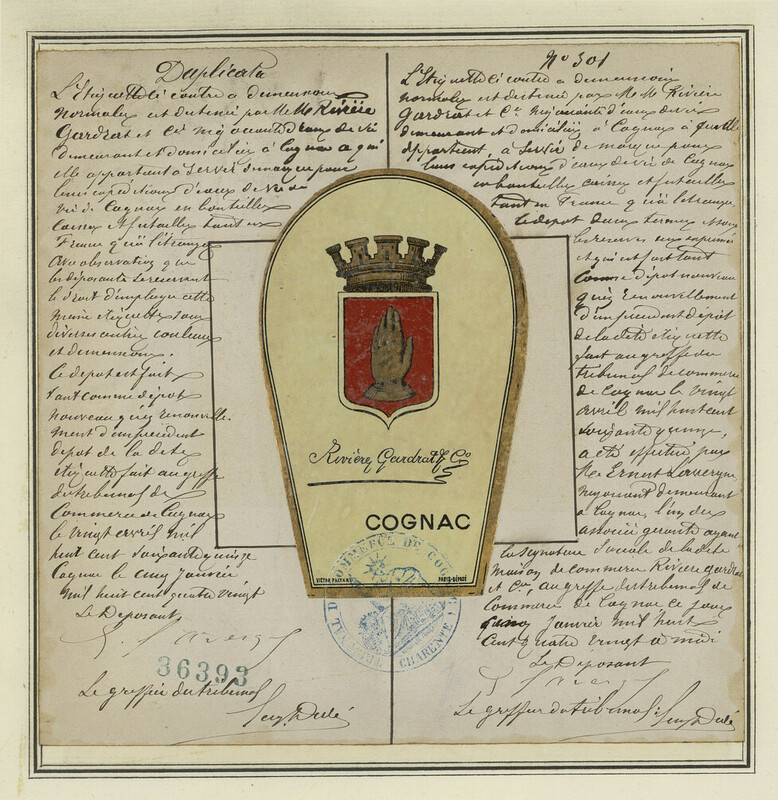 Duplicata
L'Etiquette ci contre a dimensions
normales est destinée par MM Rivière
Gardrat et Cie négociants d'eaux de vie
demeurant et domiciliés à Cognac a qui
elle appartient à servir de marque pour
leurs expéditions d'eaux de vie de
vie de Cognac en bouteilles
Caisses et futailles tant en
France qu'à l'étranger
Avec observation que
les déposants se réservent
le droit d'employer cette
même étiquette sous
diverses autres couleurs
et dimensions.
Ce dépot est fait
tant comme dépot
nouveau qu'en renouvelle-
ment d'un précédent
depot de la dite
étiquette fait au greffe
du tribunal de
Commerce de Cognac
le vingt avril mil
huit cent soixante quinze
Cognac le cinq Janvier
mil huit cent quatre vingt
Le Déposant
36393
Le greffier du tribunal
No 301
L'Etiquette ci contre a dimensions
normales est destinée par MM Rivière
Gardrat et Cie négociants d'eaux de vie
demeurant et domiciliés à Cognac à qui elle
appartient, à servir de marque pour
leurs expéditions d'eaux de vie de Cognac
en bouteilles caisses et futailles
tant en France qu'à l'étranger.
Ce dépot
les réserves sus exprimées
et qui est fait tant
comme dépot nouveau
qu'en renouvellement
d'un précédent dépot
de la dite étiquette
fait au greffe du
tribunal de commerce
de Cognac le vingt
avril mil huit cent
soixante quinze,
a été effectué par
Mr Ernest Lavergne
négociant demeurant
à Cognac, l'un des
associés gérants ayant
la signature sociale de la dite
maison de commerce Rivière Gardrat
et Cie, au greffe du tribunal de
Commerce de Cognac ce jour
cinq Janvier mil huit
cent quatre vingt a midi
Le Déposant
Le greffier du tribunal
Rivière Gardrat & Co
COGNAC
VICTOR PALYART
PARIS-DÉPOSÉ
TRIBUNAL DE COMMERCE DE COGNAC
CHARENTE